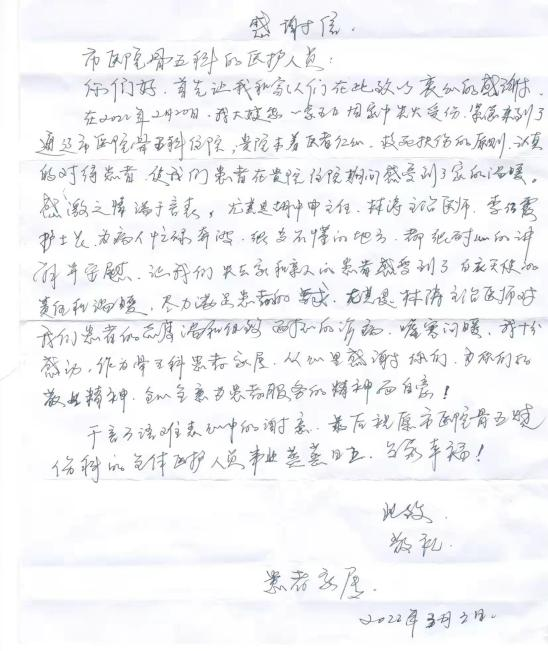 感谢信.
市医院骨五科的医护人员:
你们好，首先让我和家人们在此致以衷心的感谢.
在2022年2月20日，我大 在家中失火受伤，来到了
通辽市医院骨五科住院，贵院本着医者仁心，救死扶伤的原则，认真
的对待患者，使我们患者在贵院住院期间感受到了家的温暖。
感激之情溢于言表，尤其是 中申主任，林涛主治医师，李
护士长，为病人忙碌奔波，我不懂的地方，都很耐心的讲
解并安慰，让我们失去家和亲人的患者感受到了白衣天使的
责任和温暖，尽力满足患者的要求，尤其是林涛主治医师对
我们患者的态度温和细致耐心的治病，嘘寒问暖，我十分
感动，作为骨五科患者家属，从心里感谢你们，为你们的
敬业精神，全心全意为患者服务的精神而自豪！
千言万语难表心中的谢意，最后祝愿市医院骨五烧
伤科的全体医护人员事业蒸蒸日上，合家幸福！
此致
敬礼.
患者家属.
2022年3月3日.